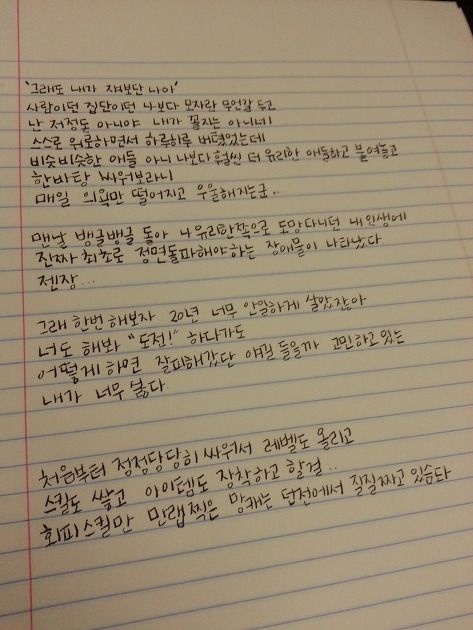 '그래도 내가 쟤보단 나아'
사람이던 집단이던 나보다 모자란 무언갈 두고
난 저정돈 아니야 내가 꼴지는 아니네!
스스로 위로하면서 하루하루 버텼었는데
비슷비슷한 애들 아니 나보다 훨씬 더 유리한 애들하고 붙여놓고
한바탕 싸워보라니
매일 의욕만 떨어지고 우울해지는군..
맨날 뱅글뱅글 돌아 나 유리한쪽으로 도망다니던 내 인생에
진짜 최초로 정면돌파해야하는 장애물이 나타났다
젠장...
그래 한번 해보자 20년 너무 안일하게 살았잖아
너도 해봐 "도전!" 하다가도
어떻게 하면 잘피해갔단 얘길 들을까 고민하고 있는
내가 너무 싫다.
처음부터 정정당당히 싸워서 레벨도 올리고
스킬도 쌓고 아이템도 장착하고 할걸..
회피스킬만 만랩찍은 망캐는 던전에서 질질짜고 있슴돠